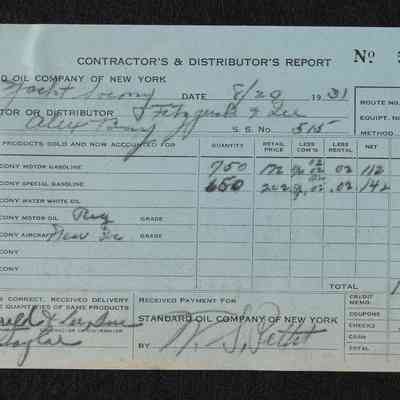 CONTRACTOR'S & DISTRIBUTOR'S REPORT Nº
RD OIL COMPANY OF NEW YORK
Yacht Socony DATE 8/20 1931
ROUTE NO.
TOR OR DISTRIBUTOR Fitzgerald & Lee
EQUIPT. NO
Alex Bay S. S. No. 515
METHOD
PRODUCTS SOLD AND NOW ACCOUNTED FOR QUANTITY RETAIL PRICE LESS COM'S LESS RENTAL NET
CONY MOTOR GASOLINE 750 172 .02 .02 112
CONY SPECIAL GASOLINE 650 202 .02 .02 142
CONY WATER WHITE OIL
CONY MOTOR OIL Reg GRADE
CONY AIRCRAFT GRADE
CONY
CONY
TOTAL
IS CORRECT, RECEIVED DELIVERY
E QUANTITIES OF SAME PRODUCTS
RECEIVED PAYMENT FOR
STANDARD OIL COMPANY OF NEW YORK
BY
CREDIT MEMO.
COUPONS
CHECKS
CASH
TOTAL